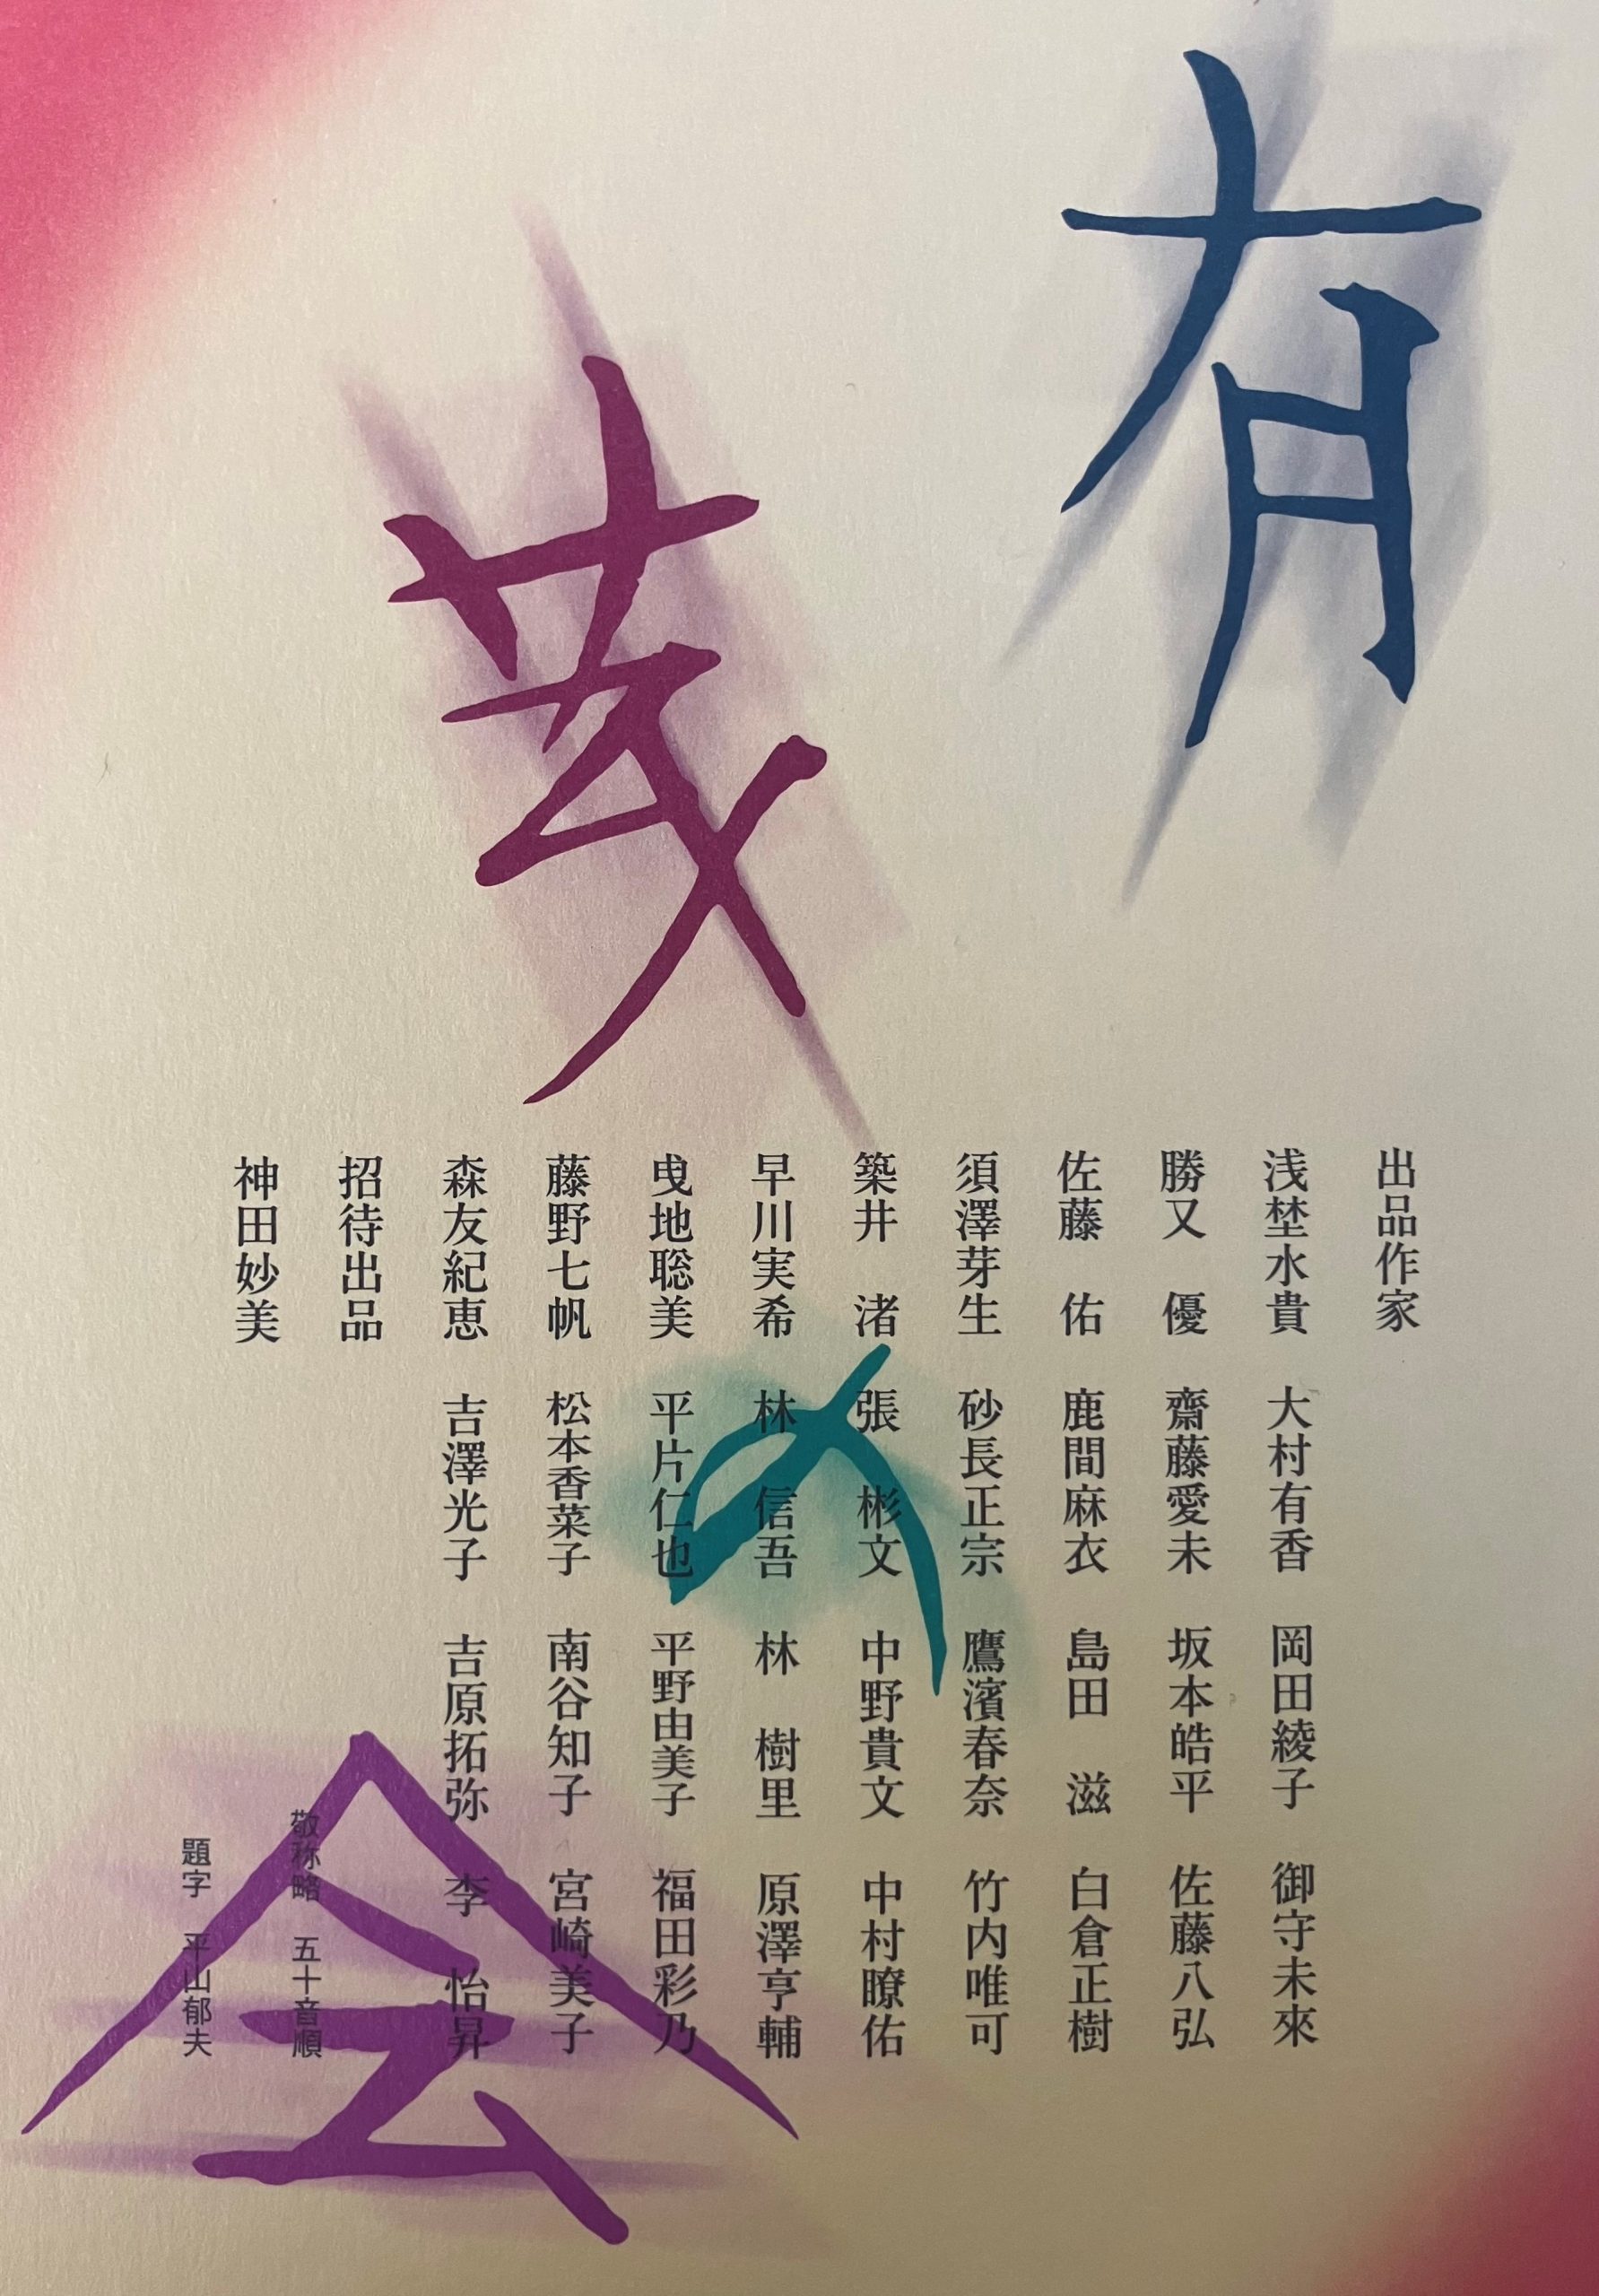 有芽の会
出品作家
浅埜水貴 大村有香 岡田綾子 御守未來
勝又 優 齋藤愛未 坂本皓平 佐藤八弘
佐藤 佑 鹿間麻衣 島田 滋 白倉正樹
須澤芽生 砂長正宗 鷹濱春奈 竹内唯可
築井 渚 張 彬文 中野貴文 中村瞭佑
早川実希 林 信吾 林 樹里 原澤亨輔
曵地聡美 平片仁也 平野由美子 福田彩乃
藤野七帆 松本香菜子 南谷知子 宮崎美子
森友紀恵 吉澤光子 吉原拓弥 李 怡昇
招待出品
神田妙美
敬称略 五十音順
題字 平山郁夫